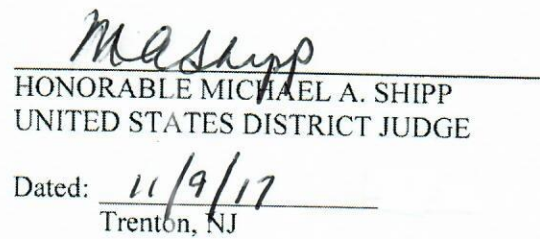 MAShipp
HONORABLE MICHAEL A. SHIPP
UNITED STATES DISTRICT JUDGE
Dated: 11/9/17
Trenton, NJ